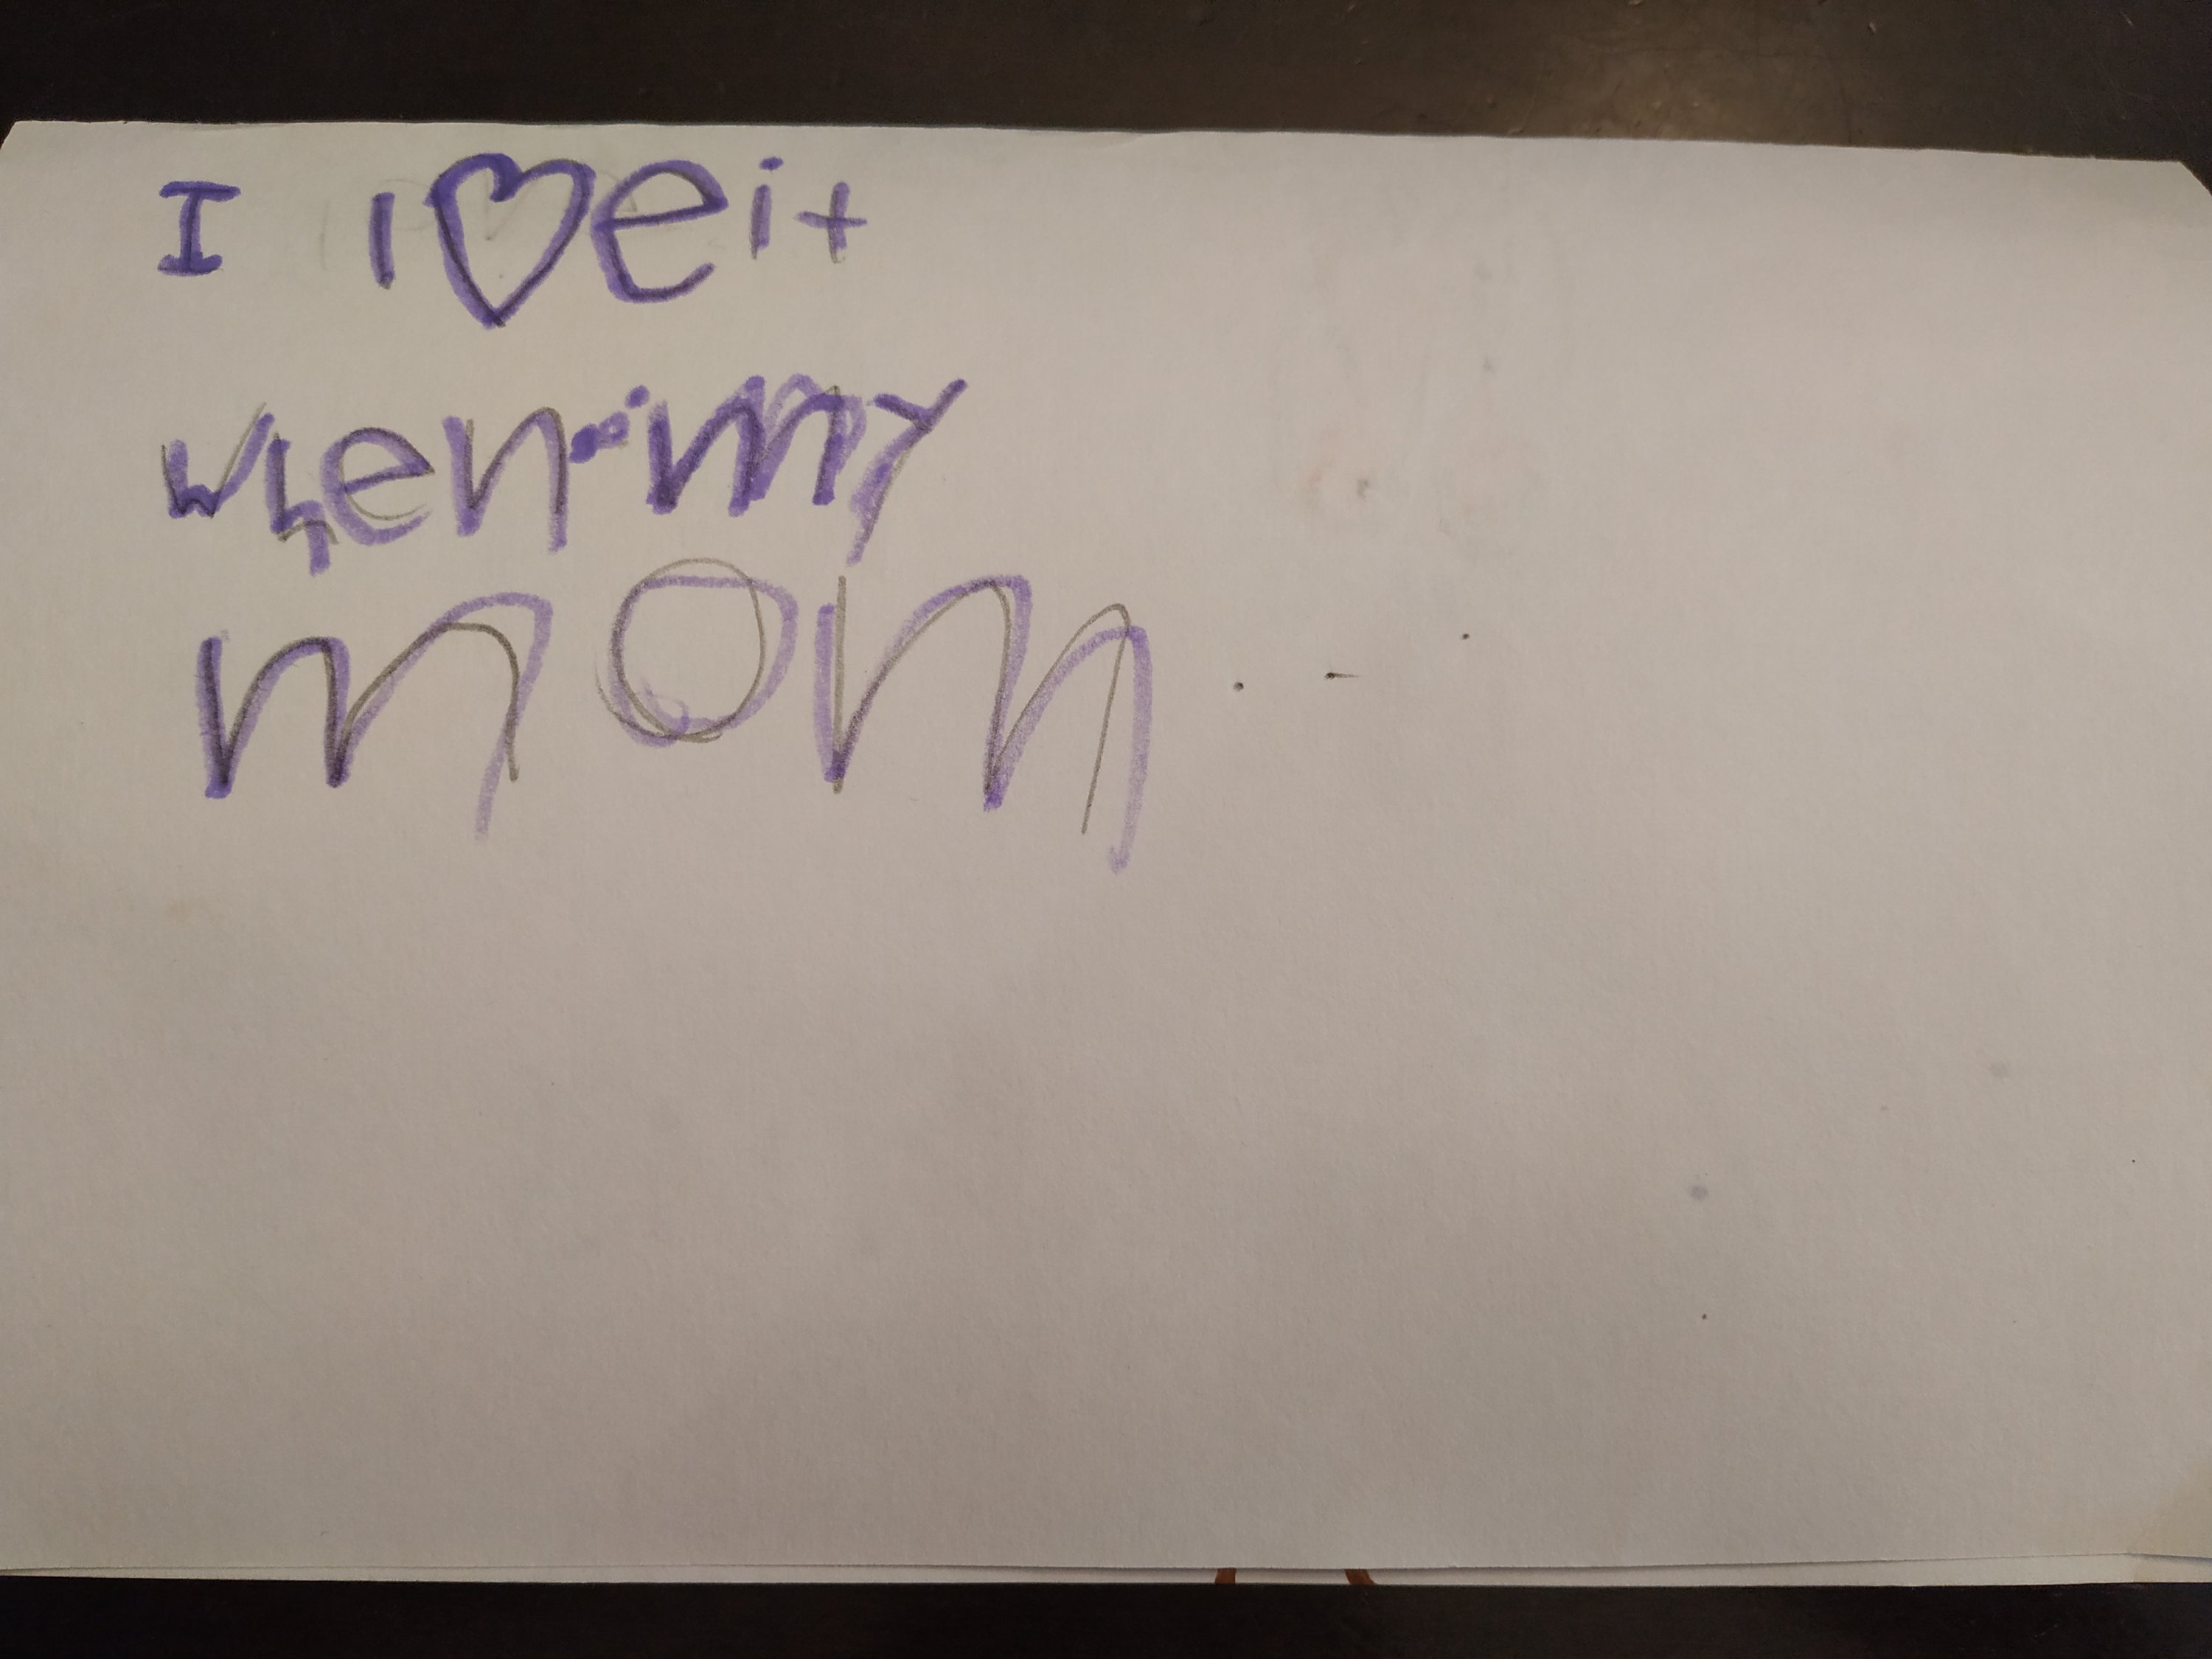 I l♡e it
when my
mom